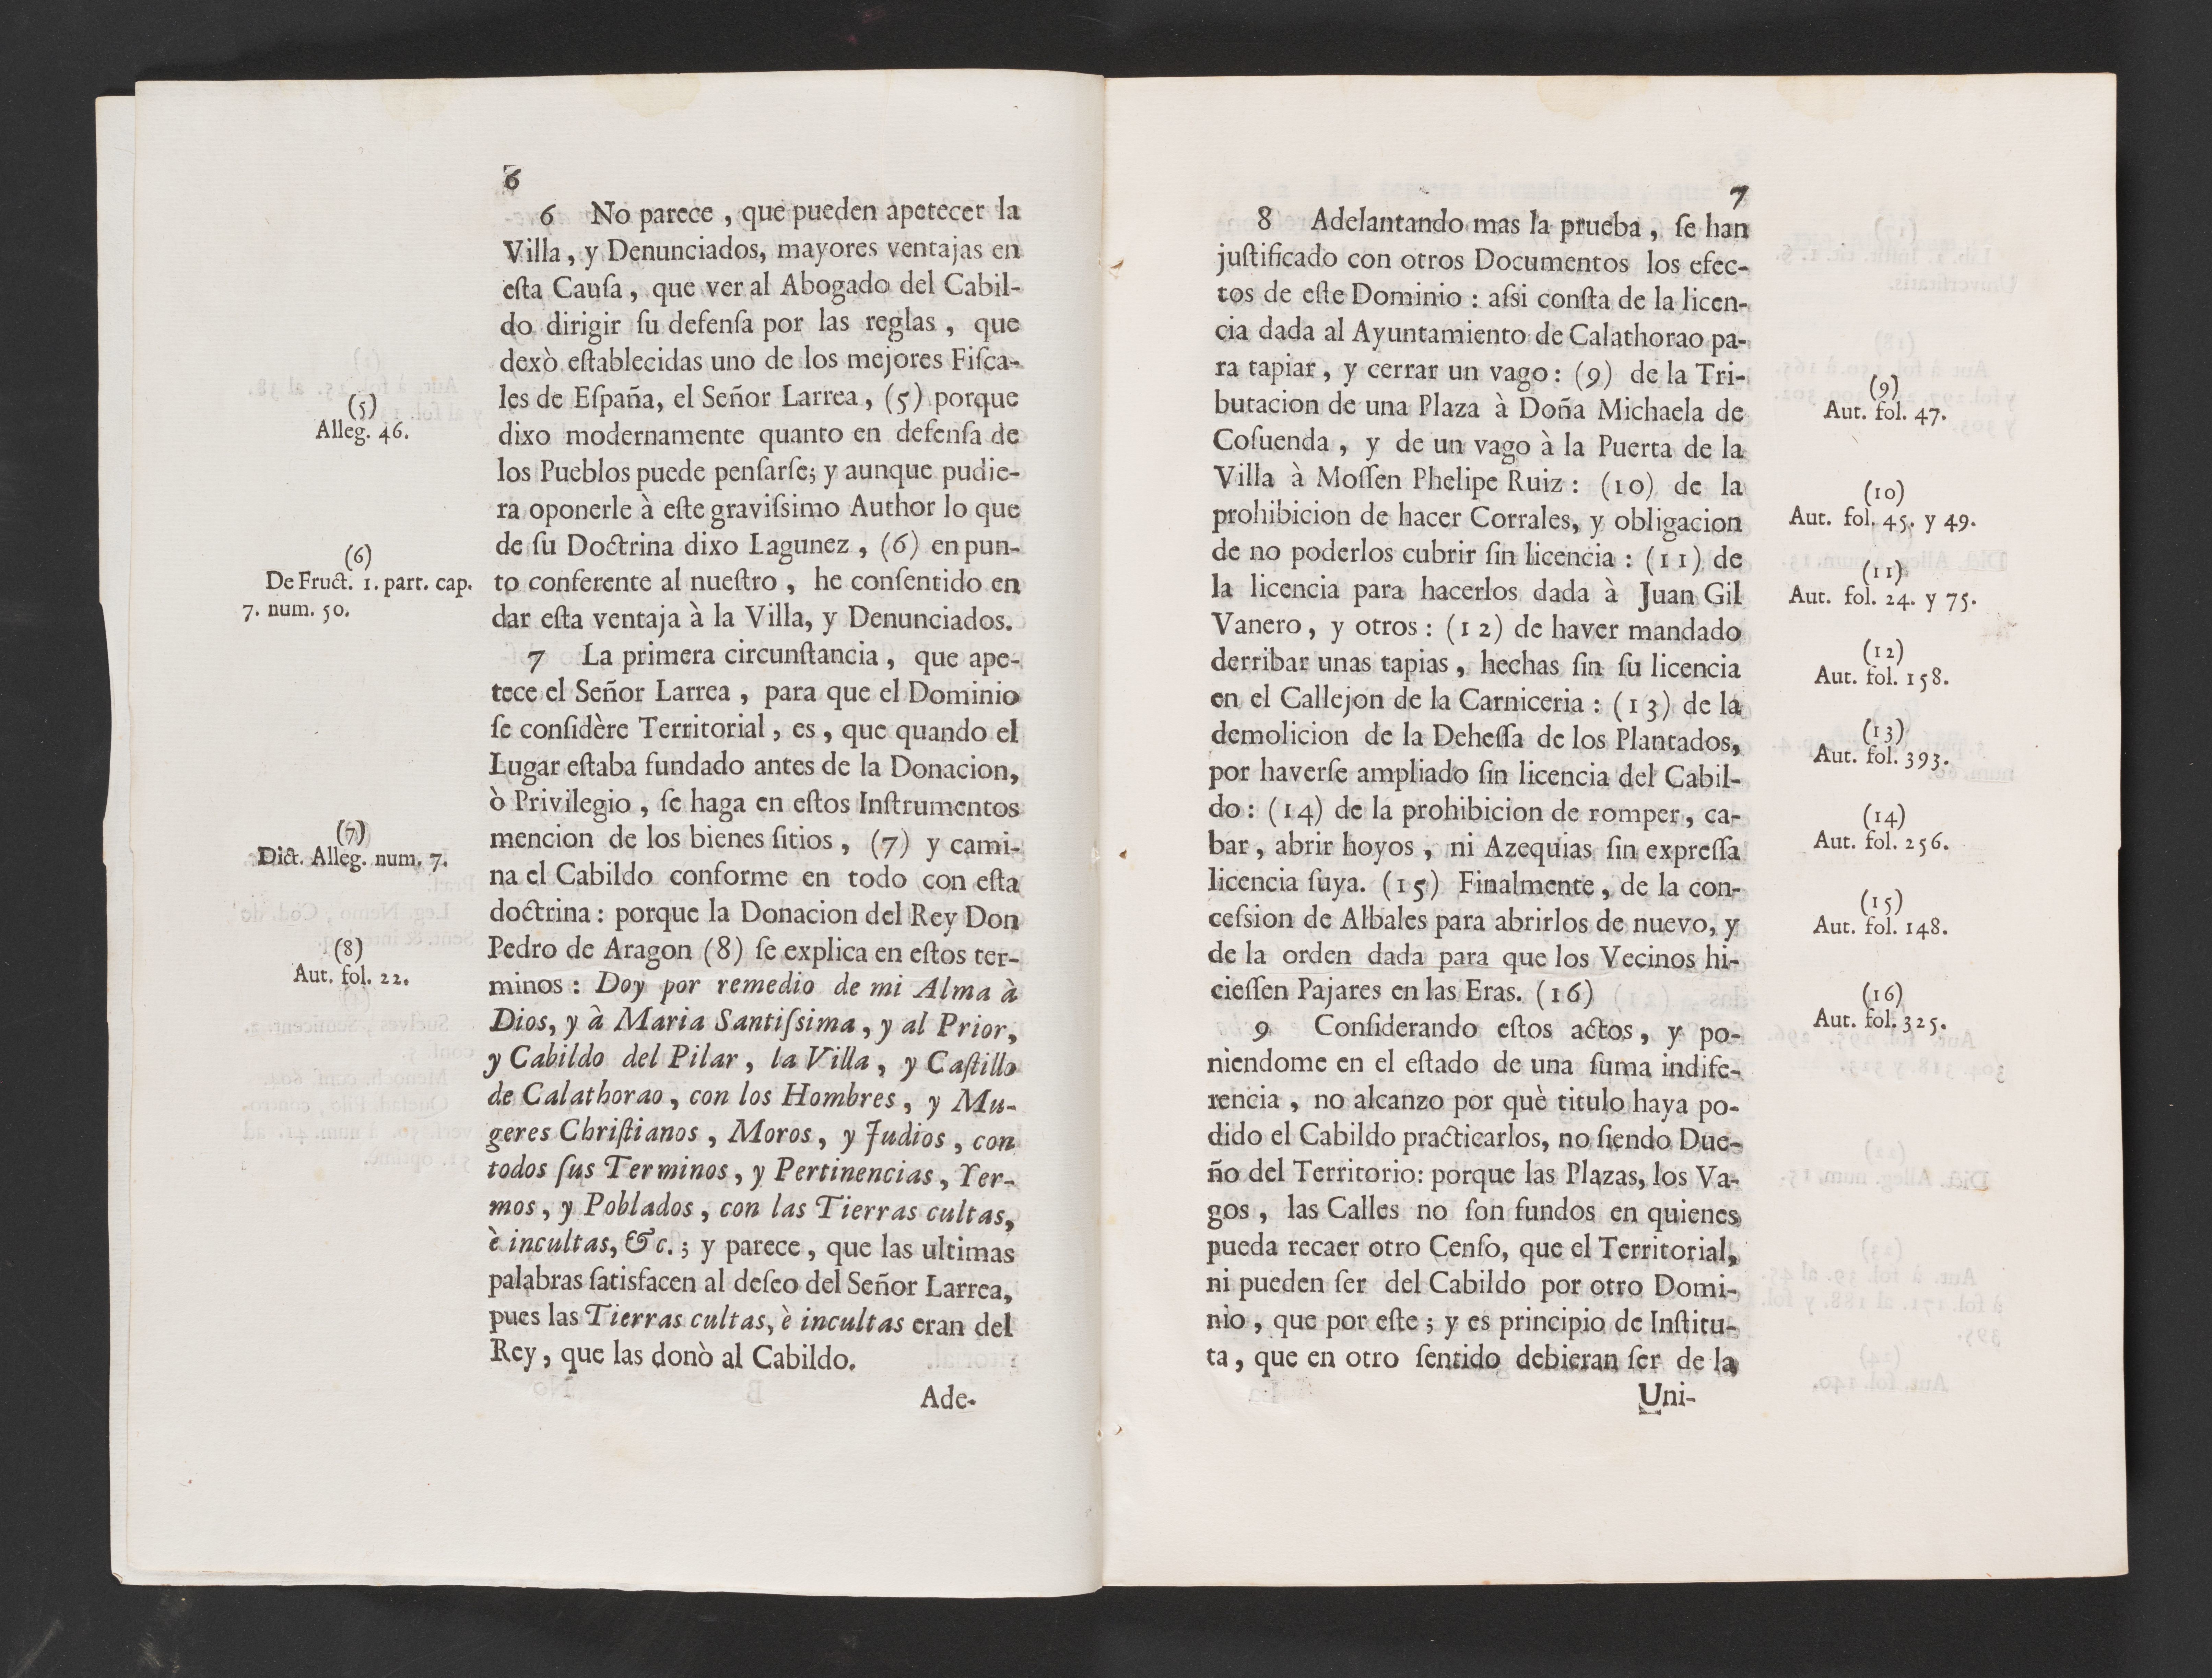 6
6 No parece, que pueden apetecer la
Villa, y Denunciados, mayores ventajas en
eſta Cauſa, que ver al Abogado del Cabil-
do dirigir ſu defenſa por las reglas, que
dexò eſtablecidas uno de los mejores Fiſca-
les de Eſpaña, el Señor Larrea, (5) porque
dixo modernamente quanto en defenſa de
los Pueblos puede penſarſe; y aunque pudie-
ra oponerle à eſte graviſsimo Author lo que
de ſu Doctrina dixo Lagunez, (6) en pun-
to conferente al nueſtro, he conſentido en
dar eſta ventaja à la Villa, y Denunciados.
7 La primera circunſtancia, que ape-
tece el Señor Larrea, para que el Dominio
ſe conſidère Territorial, es, que quando el
Lugar eſtaba fundado antes de la Donacion,
ò Privilegio, ſe haga en eſtos Inſtrumentos
mencion de los bienes ſitios, (7) y cami-
na el Cabildo conforme en todo con eſta
doctrina: porque la Donacion del Rey Don
Pedro de Aragon (8) ſe explica en eſtos ter-
minos: Doy por remedio de mi Alma à
Dios, y à Maria Santiſsima, y al Prior,
y Cabildo del Pilar, la Villa, y Caſtillo
de Calathorao, con los Hombres, y Mu-
geres Chriſtianos, Moros, y Judios, con
todos ſus Terminos, y Pertinencias, Yer-
mos, y Poblados, con las Tierras cultas,
è incultas, &c.; y parece, que las ultimas
palabras ſatisfacen al deſeo del Señor Larrea,
pues las Tierras cultas, è incultas eran del
Rey, que las donò al Cabildo.
Ade-
(5)
Alleg. 46.
(6)
De Fruct. 1. part. cap.
7. num. 50.
(7)
Dict. Alleg. num. 7.
(8)
Aut. fol. 22.
7
8 Adelantando mas la prueba, ſe han
juſtificado con otros Documentos los efec-
tos de eſte Dominio: aſsi conſta de la licen-
cia dada al Ayuntamiento de Calathorao pa-
ra tapiar, y cerrar un vago: (9) de la Tri-
butacion de una Plaza à Doña Michaela de
Coſuenda, y de un vago à la Puerta de la
Villa à Moſſen Phelipe Ruiz: (10) de la
prohibicion de hacer Corrales, y obligacion
de no poderlos cubrir ſin licencia: (11) de
la licencia para hacerlos dada à Juan Gil
Vanero, y otros: (12) de haver mandado
derribar unas tapias, hechas ſin ſu licencia
en el Callejon de la Carniceria: (13) de la
demolicion de la Deheſſa de los Plantados,
por haverſe ampliado ſin licencia del Cabil-
do: (14) de la prohibicion de romper, ca-
bar, abrir hoyos, ni Azequias ſin expreſſa
licencia ſuya. (15) Finalmente, de la con-
ceſsion de Albales para abrirlos de nuevo, y
de la orden dada para que los Vecinos hi-
cieſſen Pajares en las Eras. (16)
9 Conſiderando eſtos actos, y po-
niendome en el eſtado de una ſuma indife-
rencia, no alcanzo por què titulo haya po-
dido el Cabildo practicarlos, no ſiendo Due-
ño del Territorio: porque las Plazas, los Va-
gos, las Calles no ſon fundos en quienes
pueda recaer otro Cenſo, que el Territorial,
ni pueden ſer del Cabildo por otro Domi-
nio, que por eſte; y es principio de Inſtitu-
ta, que en otro ſentido debieran ſer de la
Uni-
(9)
Aut. fol. 47.
(10)
Aut. fol. 45. y 49.
(11)
Aut. fol. 24. y 75.
(12)
Aut. fol. 158.
(13)
Aut. fol. 393.
(14)
Aut. fol. 256.
(15)
Aut. fol. 148.
(16)
Aut. fol. 325.